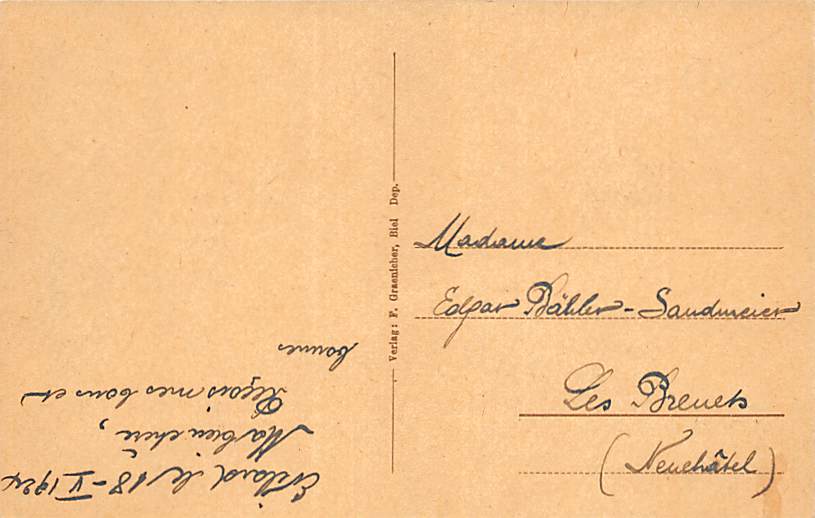 Évilard le 18-V 1924
Ma bien chère,
Reçois mes bons et
bonnes
Verlag: F. Graenicher, Biel Dep.
Madame
Edgar Bähler-Sandmeier
Les Brenets
(Neuchâtel)